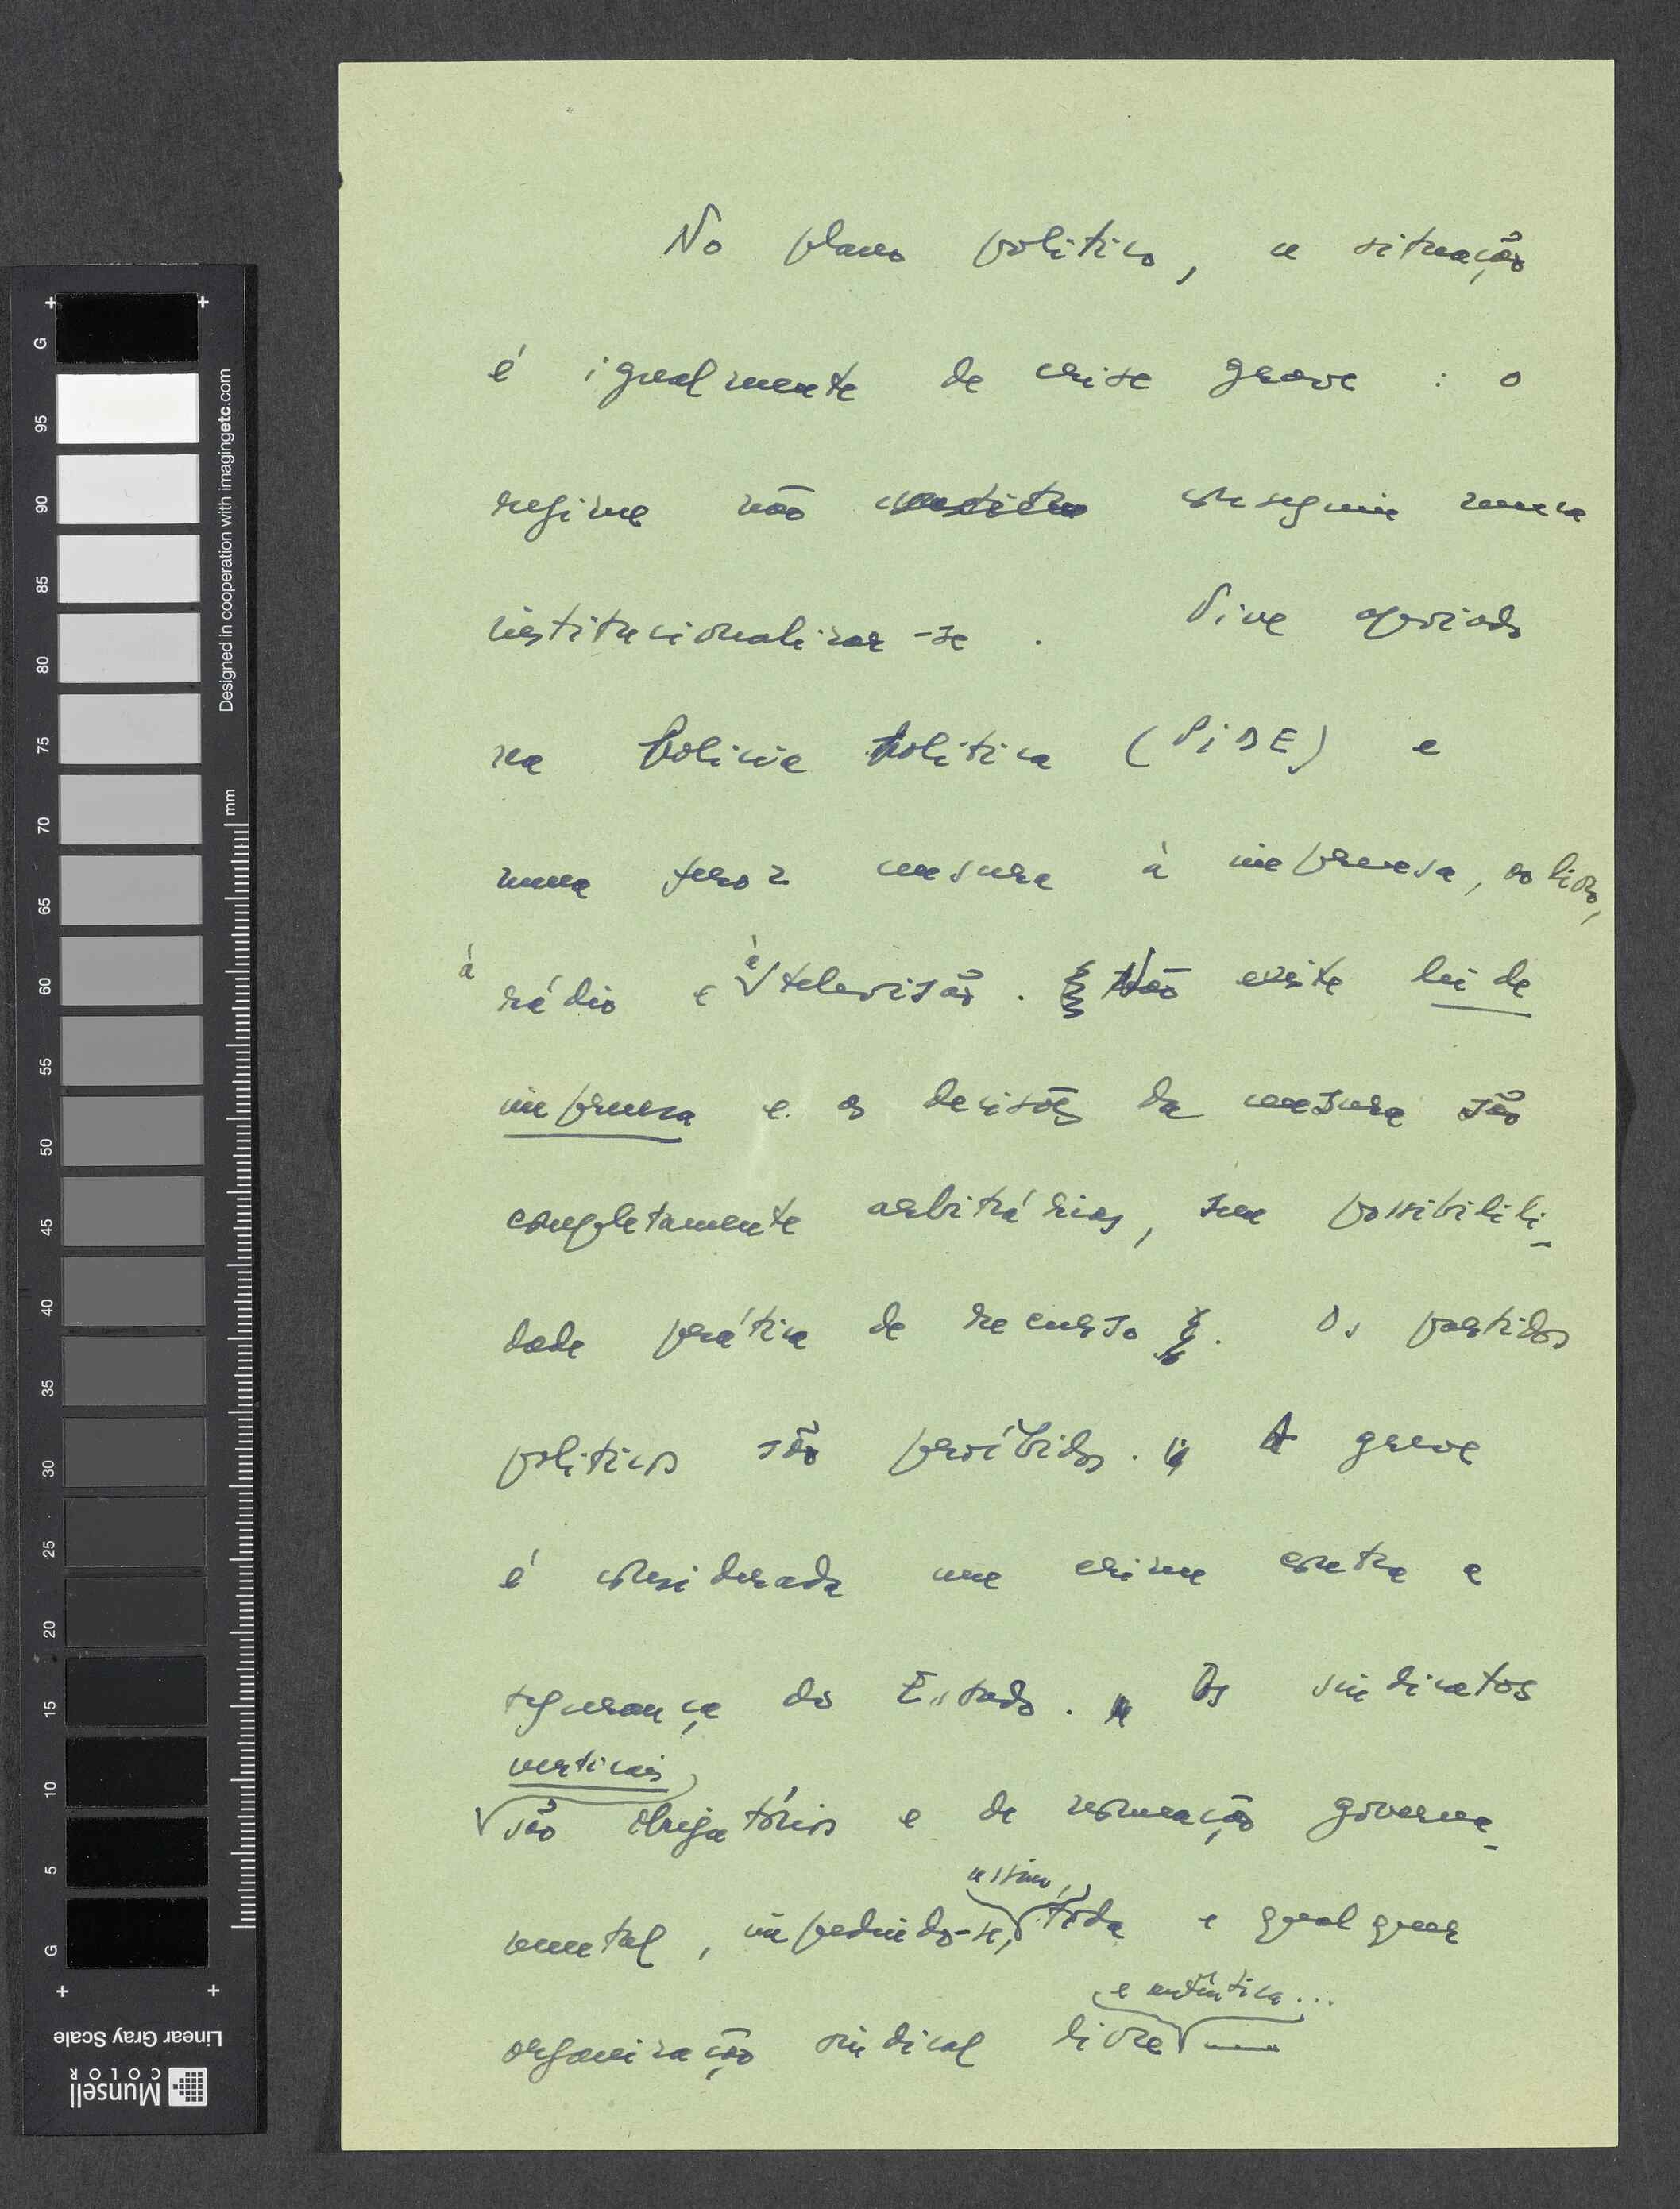 No plano politico, a situação
é igualmente de crise grave : o
regime não conseguiu nunca
institucionalizar-se. Vive apoiado
na Policia Politica (PIDE) e
numa feroz censura à imprensa, ao livro,
à rádio e à televisão. Não existe lei de
imprensa e as decisões da censura são
completamente arbitrárias, sem possibili-
dade prática de recurso. Os partidos
politicos são proíbidos. A greve
é considerada um crime contra a
segurança do Estado. Os sindicatos
verticais
são obrigatórios e de nomeação governa-
assim,
mental, impedindo-se, tôda e qualquer
e autêntica...
organização sindical livre —
G
95
90
85
80
75
70
65
60
55
50
45
40
35
30
25
20
15
10
5
G
Designed in cooperation with imagingetc.com
mm
Linear Gray Scale
Munsell
COLOR